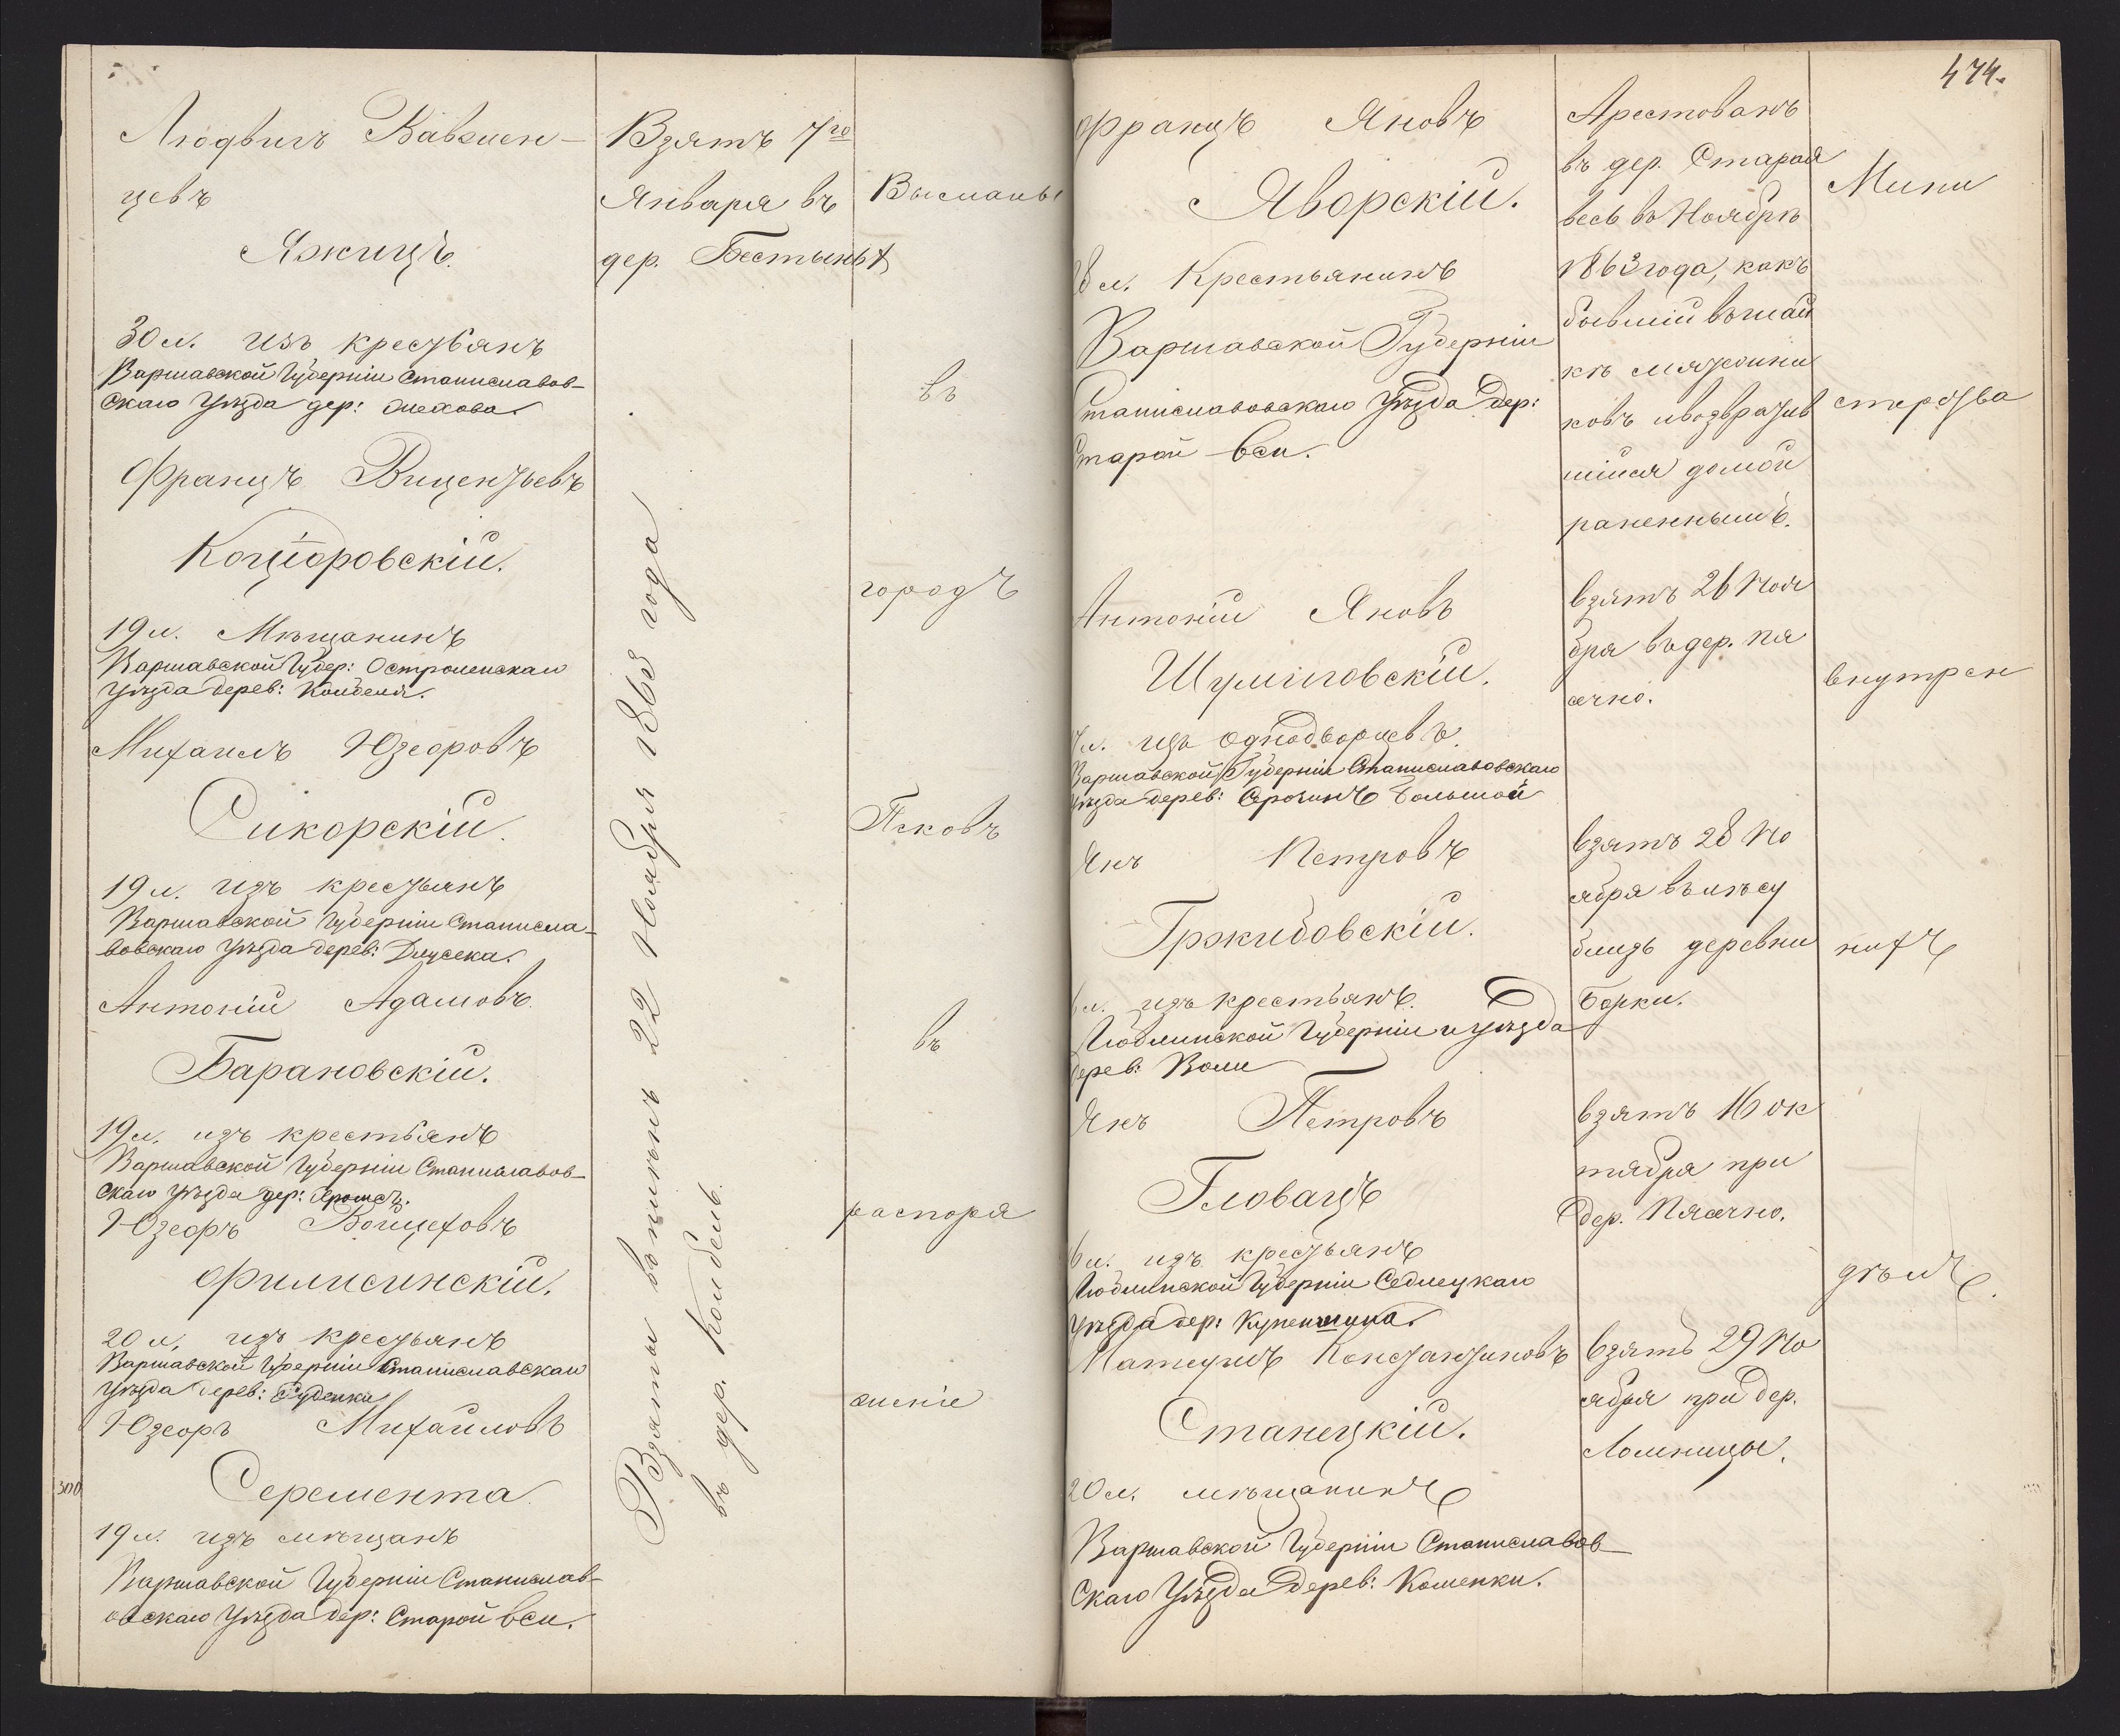 Людвигъ Вавжен-
цевъ
Яжицъ.
30 л. изъ крестьянъ
Варшавской Губерніи Станиславов-
скаго Уѣзда дер:
Францъ Виценьтьевъ
Коцюровскій.
19 л. Мѣщанинъ
Варшавской Губер: Остроленскаго
Уѣзда дерев: Колбеля.
Михаилъ Юзефовъ
Сикорскій.
19 л. изъ крестьянъ
Варшавской Губерніи Станисла-
вовскаго Уѣзда дерев: Длусека.
Антоній Адамовъ.
Барановскій.
19 л. изъ крестьянъ
Варшавской Губерніи Станиславов-
скаго Уѣзда дер:
Юзефъ Войцеховъ
Филисинскій.
20 л. изъ крестьянъ
Варшавской Губерніи Станиславскаго
Уѣзда дерев: Руденки
Юзефъ Михайловъ
300
Серемента
19 л. изъ мѣщанъ
Варшавской Губерніи Станислав-
овскаго Уѣзда дер: Старой вси.
Взятъ 7го
Января въ
дер. Бестыньѣ
Взяты въ 22 Ноября 1863 года
въ дер. Колбель.
Высланы
въ
городъ
Псковъ
въ
распоря
женіе
474.
Францъ Яновъ
Яворскій.
8 л. Крестьянинъ
Варшавской Губерніи
Станиславовскаго Уѣзда дер:
Старой вси.
Антоній Яновъ
Шумиговскій.
7 л. изъ однодворцевъ.
Варшавской Губерніи Станиславовскаго
Уѣзда дерев: Сърочинъ большой
Янъ Петровъ
Гржибовскій.
6 л. изъ крестьянъ.
Люблинской Губерніи и Уѣзда
дерев: Воли
Янъ Петровъ
Гловацъ
6 л. изъ крестьянъ
Люблинской Губерніи Седлецкаго
Уѣзда дер:
Матеушъ Константиновъ
Станецкій.
20 л. мѣщанинъ
Варшавской Губерніи Станиславов-
скаго Уѣзда дерев: Коменки.
Арестованъ
въ дер. Старая
весь въ Ноябрѣ
1863 года, какъ
бывшій въ шай
кѣ мятежни
ковъ и возвратив
шійся домой
раненнымъ.
взятъ 26 Ноя
бря въ дер. Пя
сечно.
взятъ 28 Но
ября въ лѣсу
близь деревни
Борки.
взятъ 16 ок
тября при
дер. Пясечно.
взятъ 29 Но
ября при дер.
Ломницы.
Мини
стерства
внутрен
нихъ
дѣлъ.